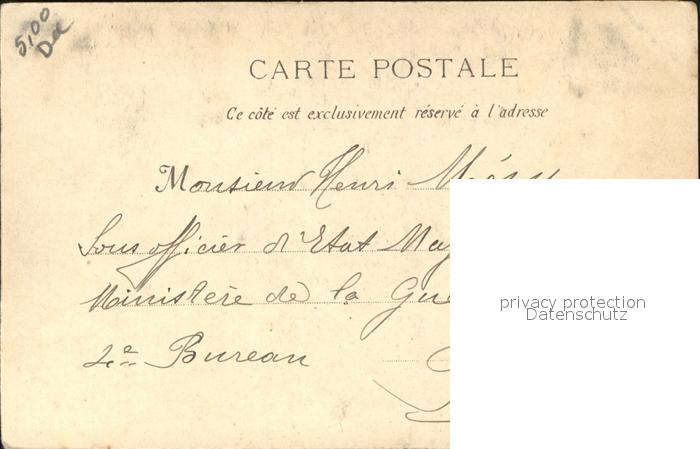 5,00
CARTE POSTALE
Ce côté est exclusivement réservé à l'adresse
Monsieur Henri
Sous officier d'Etat
Ministère de la
2e Bureau
privacy protection
Datenschutz